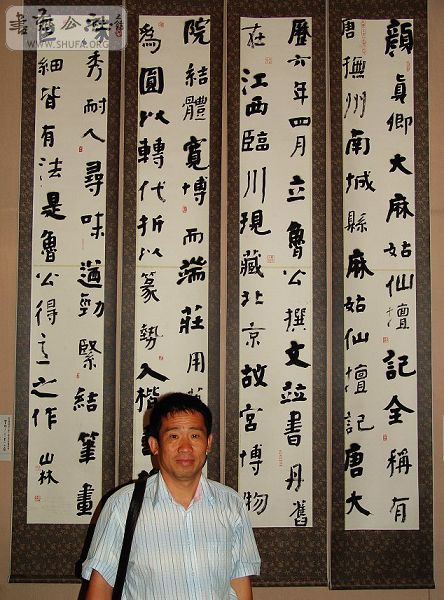 顏真卿大麻姑仙壇記全稱有
唐撫州南城縣麻姑仙壇記唐大
曆六年四月立魯公撰文竝書丹舊
在江西臨川現藏北京故宮博物
院結體寬博而端莊用
為圓以轉代折以篆勢入楷
深秀耐人尋味遒勁緊結筆畫
細皆有法是魯公得意之作 山林
WWW.SHUFA.ORG